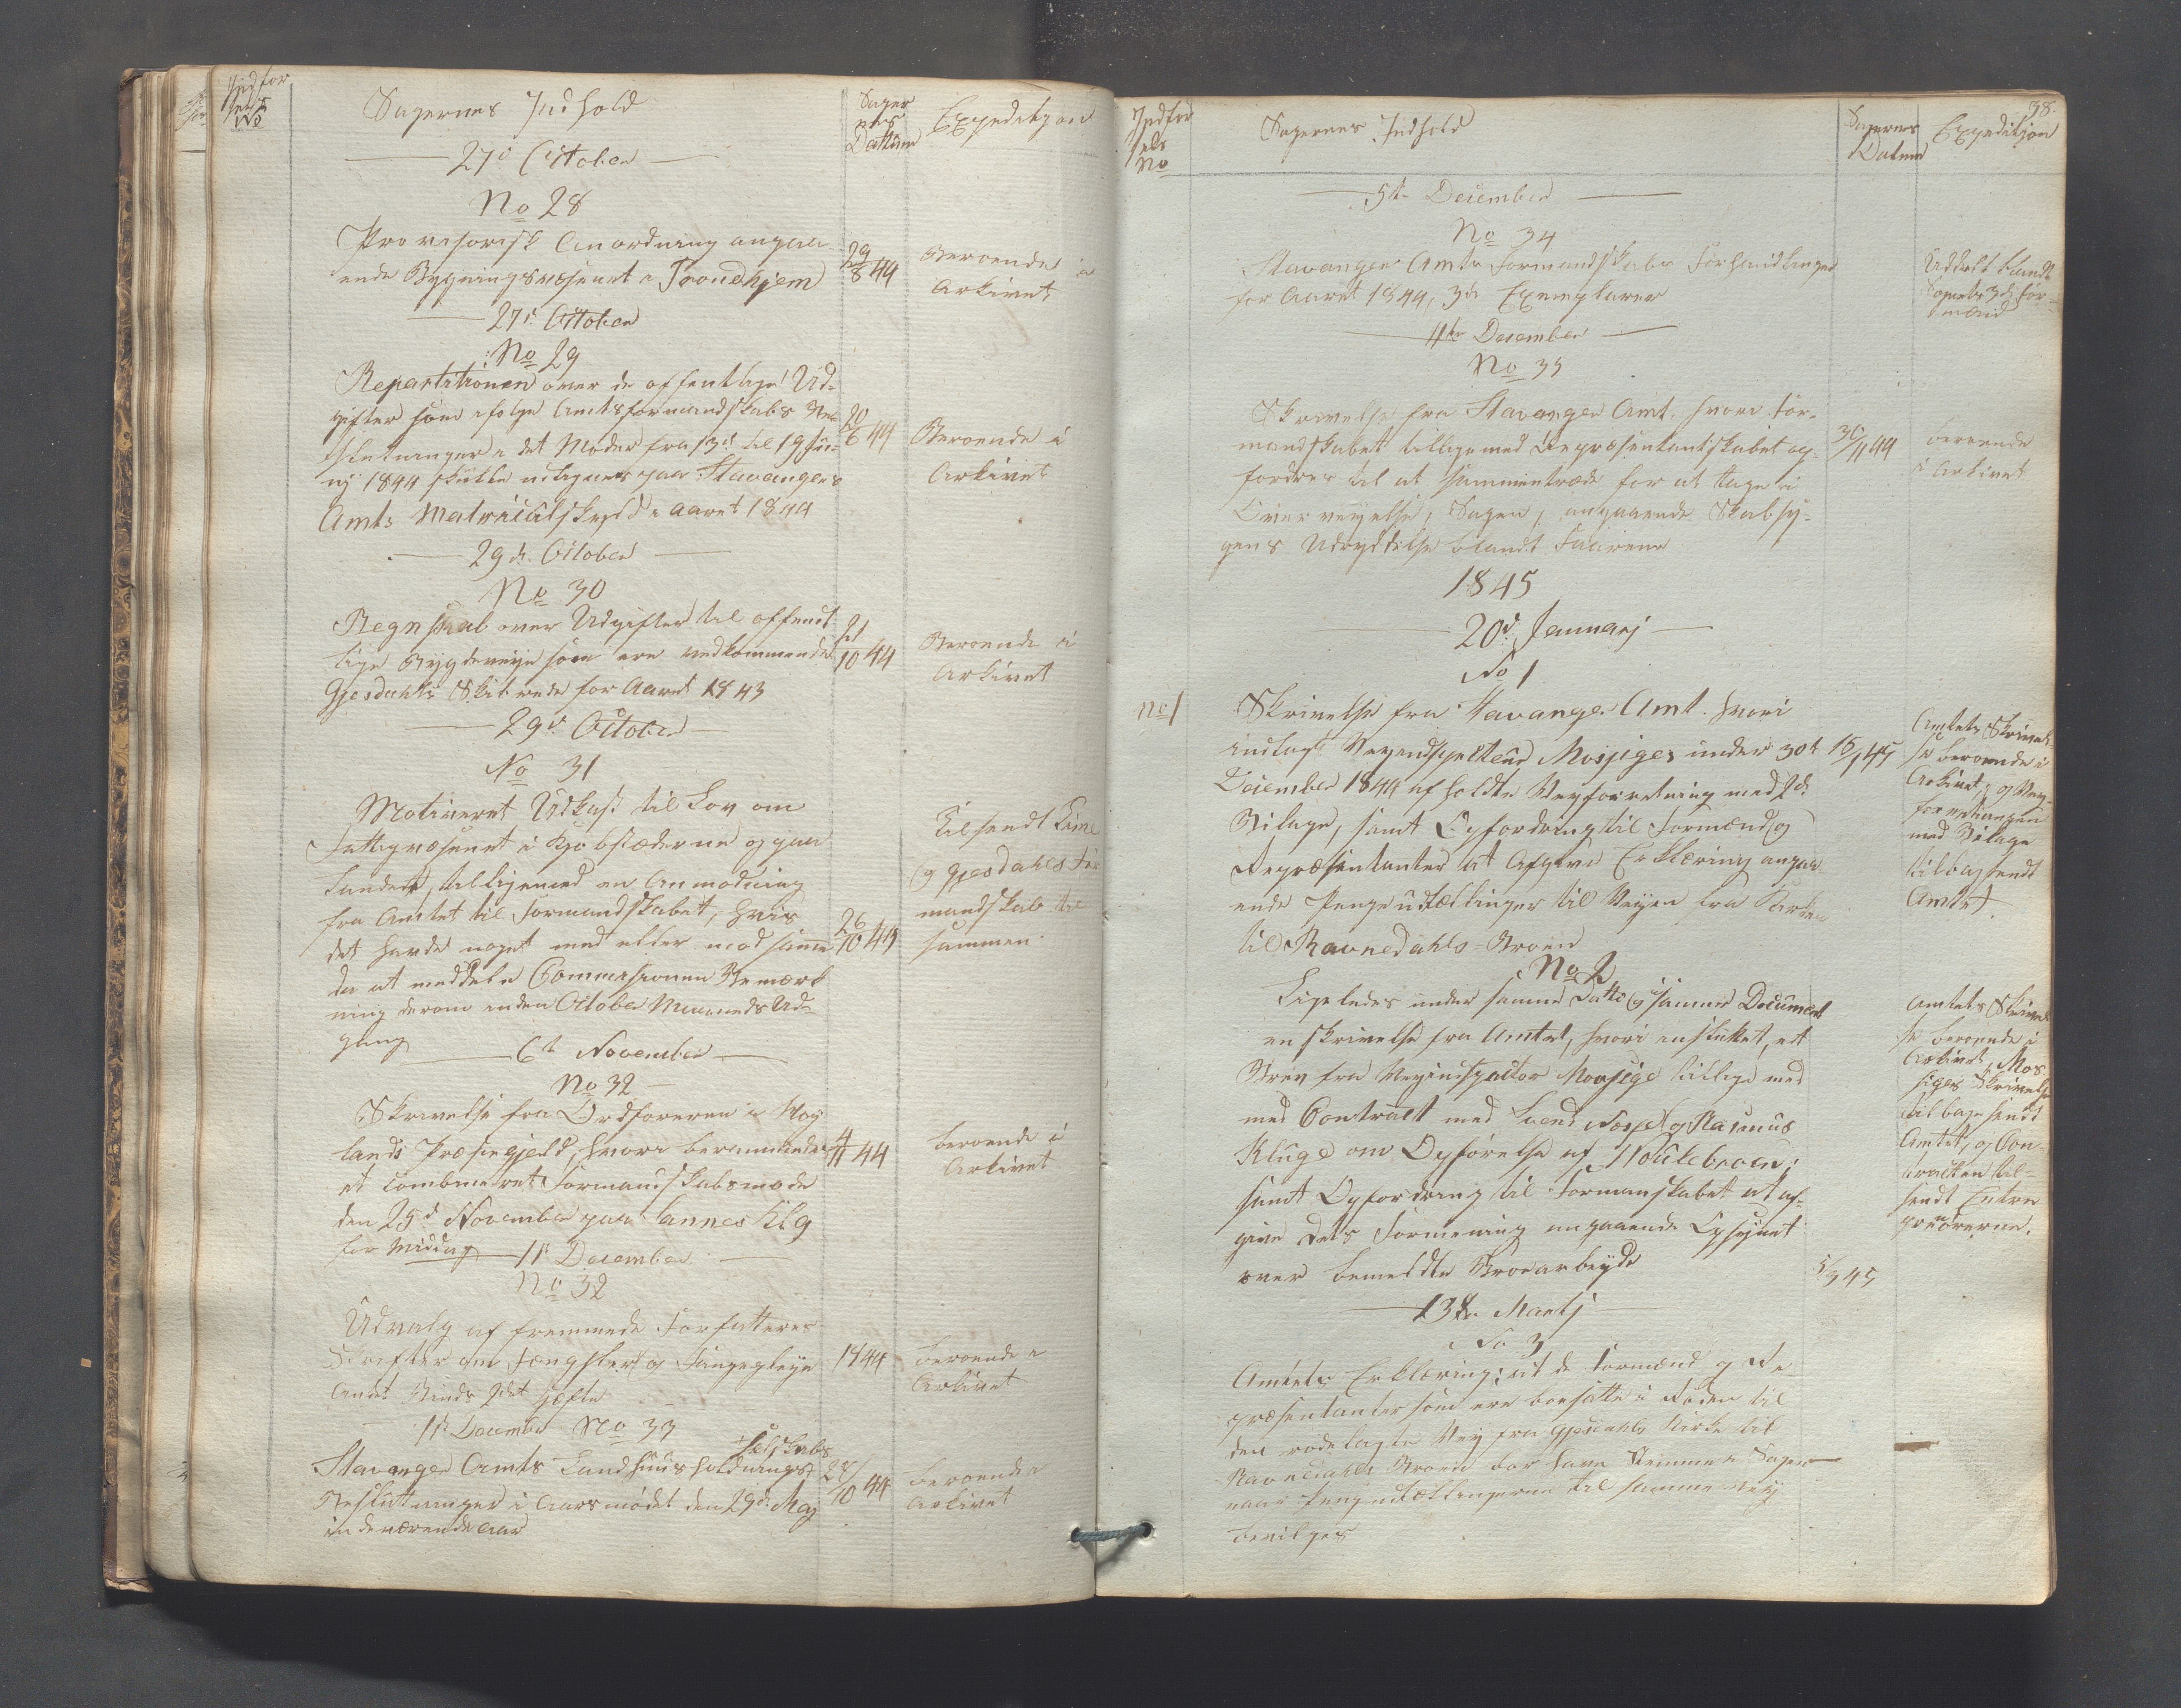 Indfør
sels
No
Sagernes Indhold
Sager
nes
Dattum
Expedition
27d October
No 28
Provisorisk Anordning angaa-
ende Bygningsvæsenet i Trondhjem
29/8 44
Beroende i
Arkivet
27d October
No 29
Repartitionen over de offentlige Ud-
gifter som ifølge Amtsformandskabs Be-
slutninger i det Møder fra 13d til 19 Ju-
nj 1844 skulde udlignes paa Stavangers
Amts Matriculskyld i Aaret 1844
20/6 44
Beroende i
Arkivet
29d October
No 30
Regnskab over Udgifter til offent
lige Bygdeveije som ere vedkommende
Gjesdahls Skibrede for Aaret 1843
21/10 44
Beroende i
Arkivet
29d October
No 31
Motiveret Udkast til Lov om
Fattigvæsenet i Kjøbstæderne og paa
Landet, tilligemed en Anmodning
fra Amtet til Formandskabet, hvis
det havde noget med eller mod samme
da at meddele Commisionen Bemærk
ning derom inden October Maaneds Ud-
gang
26/10 44
Tilsendt Lime
og Gjesdahls For
mandskab til
sammen
6d November
No 32
Skrivelse fra Ordføreren i Høy
lands Præstegjeld, hvori berammedes
et combineret Formandskabsmøde
den 25d November paa Sannes Klg
for Middag
44
beroende i
Arkivet
11t December
No 32
Udvalg af fremmede Forfatteres
Skrifter om Fængsler og Fangepleye
Andet Binds 2det Hæfte
1844
beroende i
Arkivet
11t December No 33
Stavanger Amts Landhuusholdnings
Selskabs
Beslutninger i Aarsmødet den 29d Maj
indeværende Aar
28/10 44
beroende i
Arkivet
38.
Indfør
sels
No
Sagernes Indhold
Sagernes
Datum
Expedition
5t December
No 34
Stavanger Amts Formandskabs Forhandlinger
for Aaret 1844, 3de Exemplarer
Uddelt blandt
Sognets 3de For-
mænd
11te December
No 35
Skrivelse fra Stavanger Amt, hvori For-
mandskabet tilligemed Repræsentantskabet op-
fordres til at sammentræde for at tage i
Overveyelse, Sagen, angaaende Skabsy-
gens Udryddelse blandt Faarene
30/11 44
beroende
i Arkivet
1845
20d Januarj
No 1
No 1
Skrivelse fra Stavanger Amt hvori
indlagt Veyinspecteur Mosjiges under 30t
December 1844 afholdte Veyforretning med 2de
Bilage, samt Opfordring til Formænd og
Repræsentanter at Afgive Erklæring angaa-
ende Pengeudtællinger til Veyen fra Kirken
til Ravnedahls-Broen
15/1 45
Amtets Skrivel
se beroende i
Arkivet, og Vey-
forretningen
med Bilage
tilbagsendt
Amtet
No 2
Ligeledes under samme Datto og samme Document
en skrivelse fra Amtet, hvori indsluttet, et
Brev fra Veyinspector Mossige tillige med
med Contract med Svend Nosse og Rasmus
Kluge om Opførelse af Houlebroen;
samt Opfordring til Formanskabet at af-
give dets Formening angaaende Opsynet
over bemeldte Broearbeyde
Amtets Skrivel
se beroende i
Arkivet, Mos
siges Skrivelse
tilbagesendt
Amtet, og Con-
tracten til-
sendt Entre
prenørerne.
5/3 45
13de Martj
No 3
Amtets Erklæring; at de Formænd og Re
præsentanter som ere boesatte i Roden til
den rodelagte Vey fra Gjesdahls Kirke til
Ravnedahls Broen bør have Stemme i Sagen
naar Pengeudtællingerne til samme Vey
bevilges